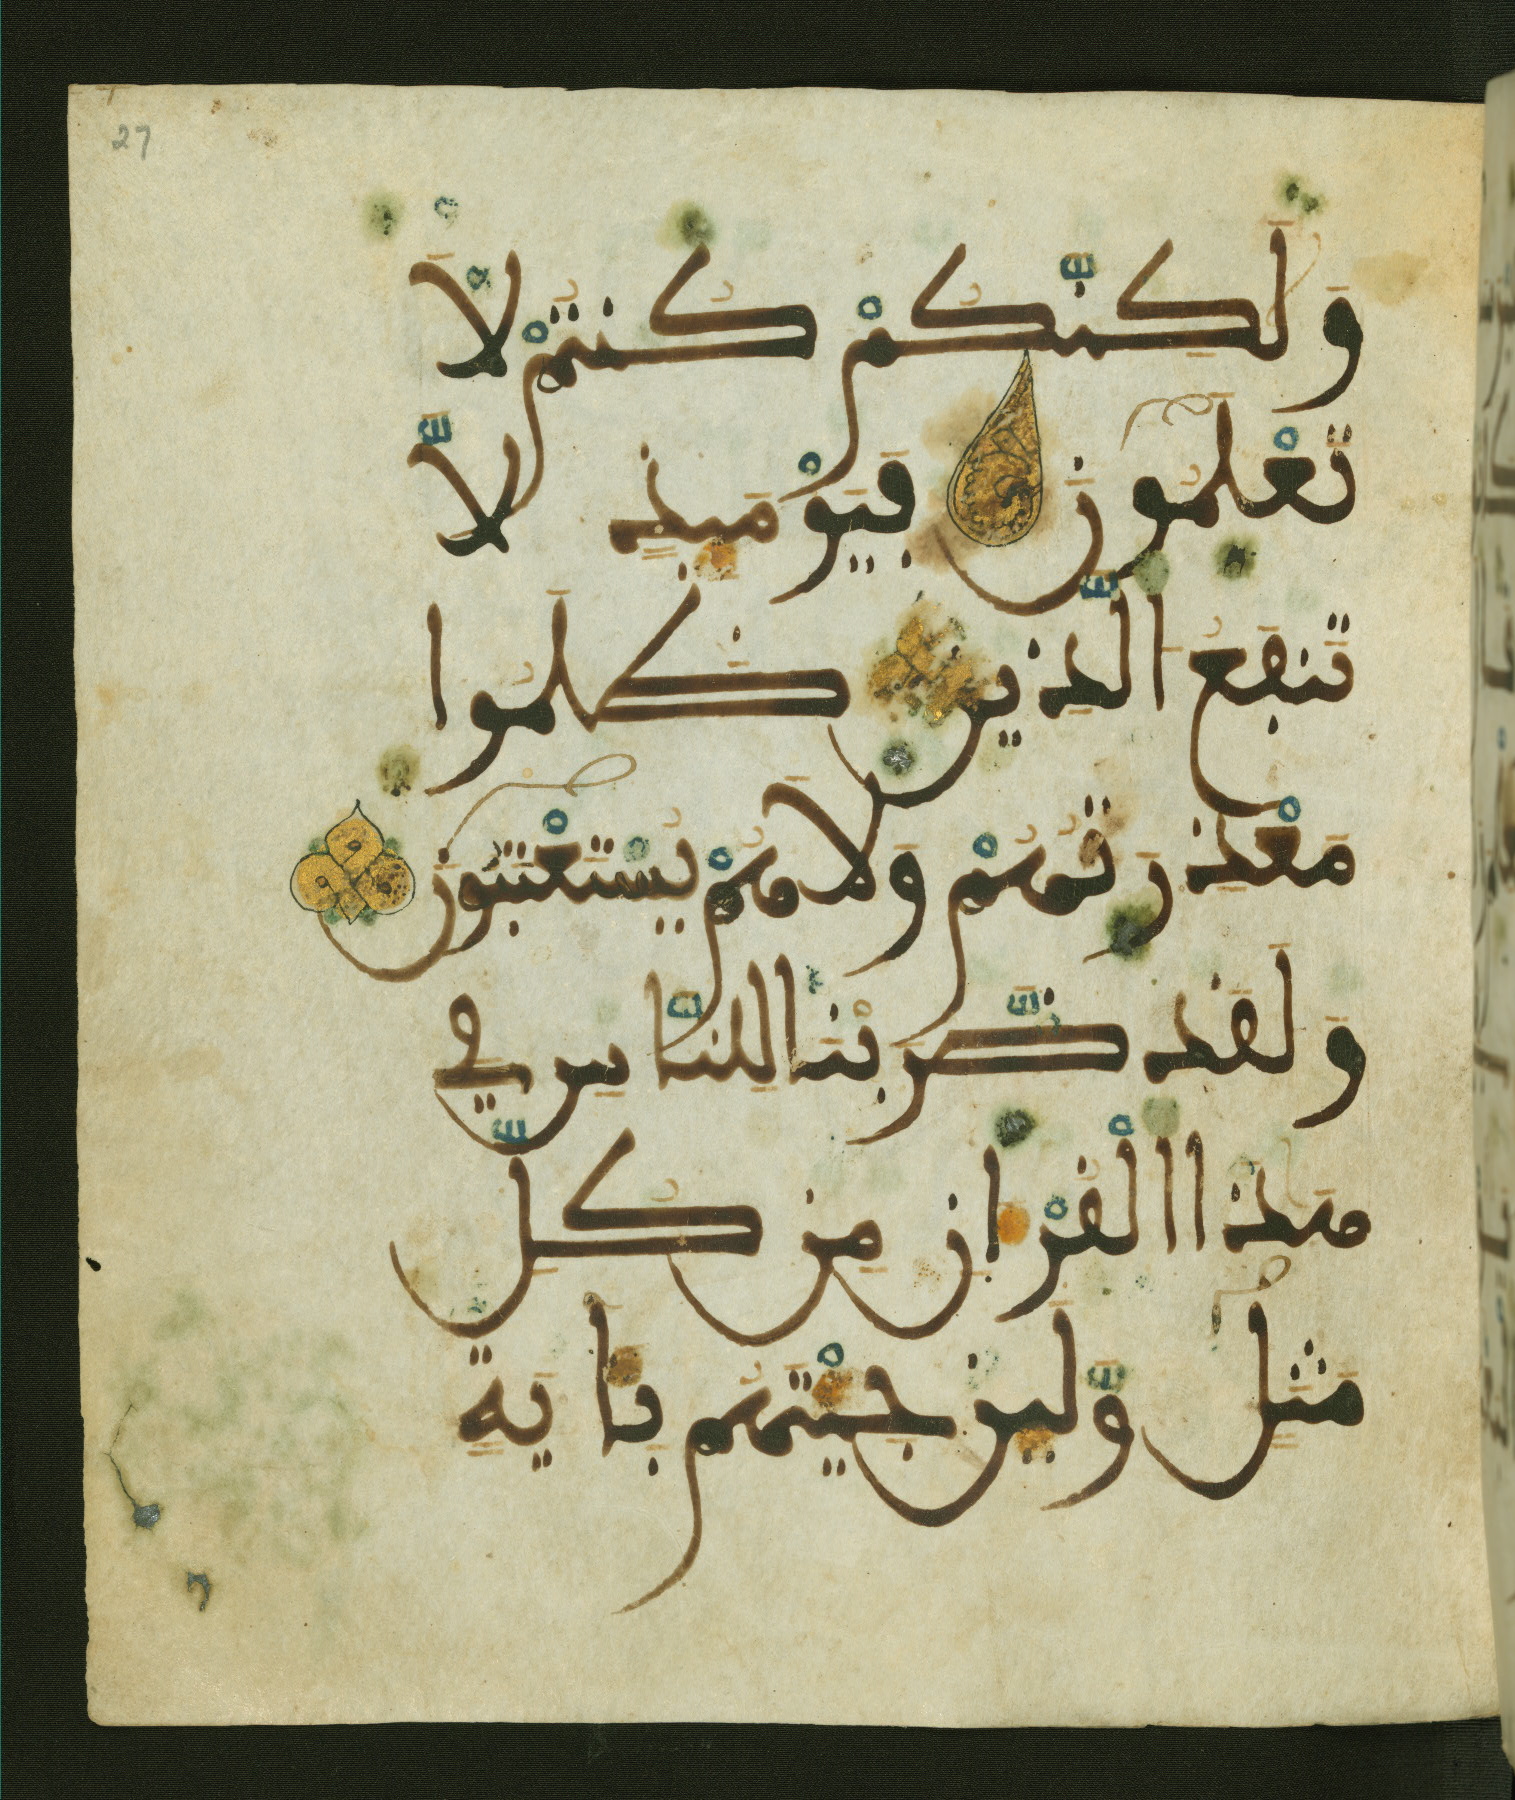 27
وَلَٰكِنَّكُمْ كُنتُمْ لَا
تَعْلَمُونَ فَيَوْمَئِذٍ لَّا
تَنفَعُ الَّذِينَ ظَلَمُوا
مَعْذِرَتُهُمْ وَلَا هُمْ يُسْتَعْتَبُونَ
وَلَقَدْ ضَّرَبْنَا لِلنَّاسِ فِي
هَٰذَا الْقُرْءَانِ مِن كُلِّ
مَثَلٍ وَلَئِن جِئْتَهُم بِـَٔايَةٍ